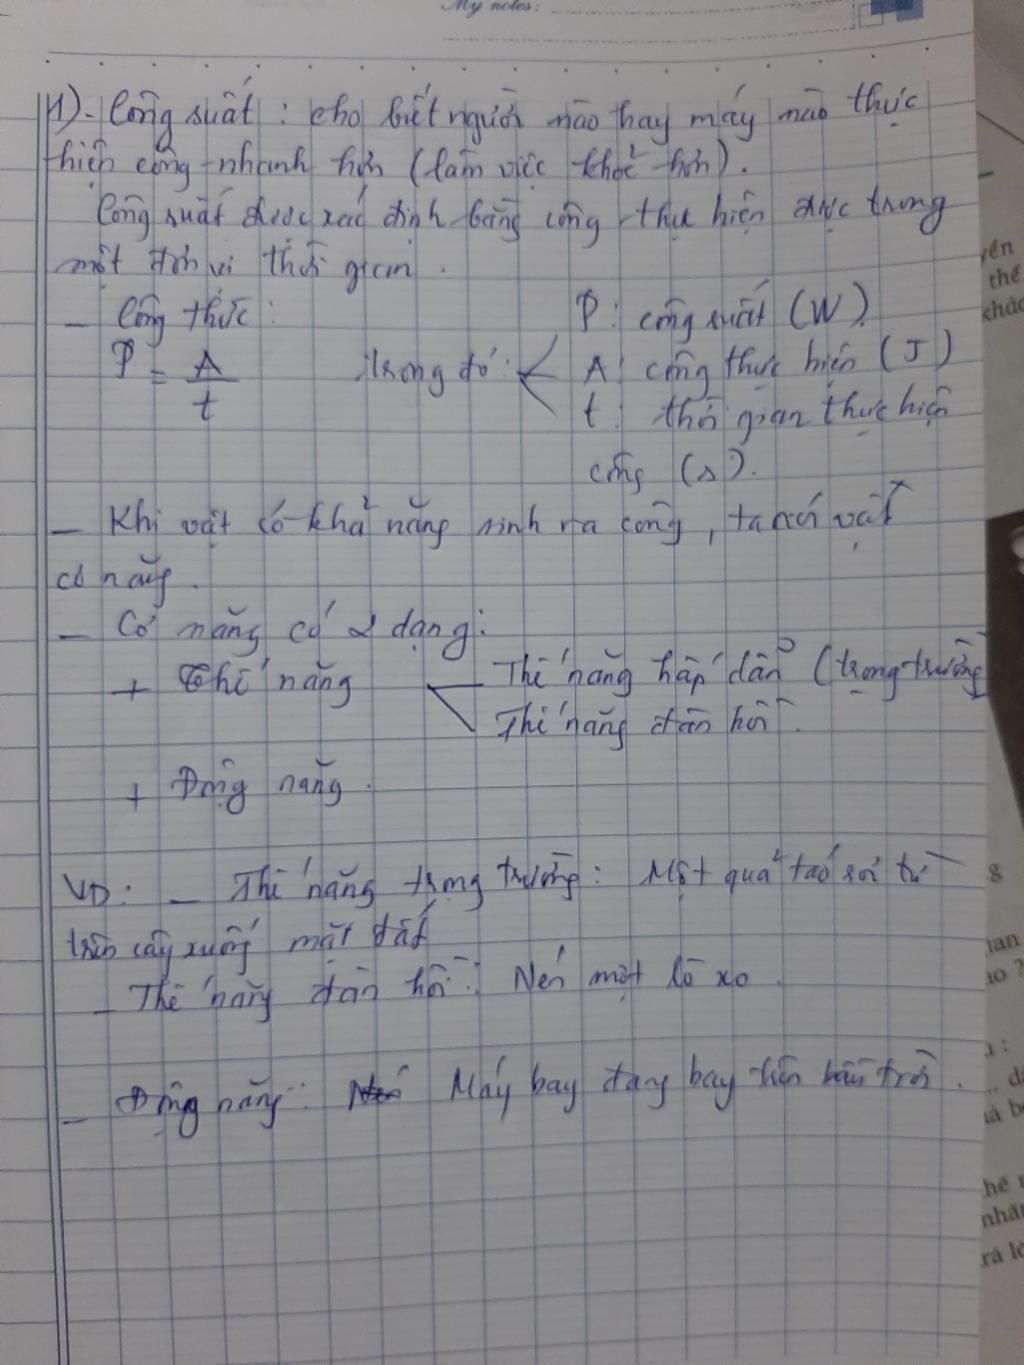 My notes:
1). Công suất : cho biết người nào hay máy nào thực
hiện công nhanh hơn (làm việc khoẻ hơn).
Công suất được xác định bằng công thực hiện được trong
một đơn vị thời gian.
- Công thức:
P = A/t trong đó:
P: công suất (W)
A: công thực hiện (J)
t: thời gian thực hiện
công (s).
- Khi vật có khả năng sinh ra công, ta nói vật
có năng.
- Cơ năng có 2 dạng:
+ Thế năng
Thế năng hấp dẫn (trọng trường
Thế năng đàn hồi.
+ Động năng.
VD: - Thế năng trọng trường: Một quả táo rơi từ
trên cây xuống mặt đất
- Thế năng đàn hồi: Nén một lò xo.
- Động năng: Máy bay đang bay trên bầu trời.
yến
thế
khác
8
ian
ào ?